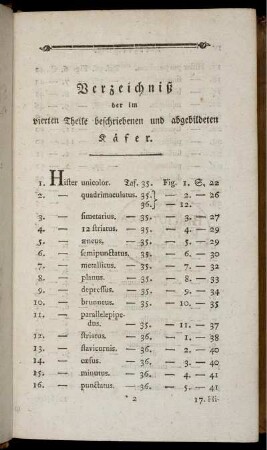 Verzeichniß
der im
vierten Theile beschriebenen und abgebildeten
Käfer.
1. Hister unicolor. Taf. 35. Fig. 1. S. 22
2. — quadrimaculatus. 35.} — 2. — 26
36.} — 12.
3. — simetarius. — 35. — 3. — 27
4. — 12 striatus. — 35. — 4. — 29
5. — æneus. — 35. — 5. — 29
6. — semipunctatus. — 35. — 6. — 30
7. — metallicus. — 35. — 7. — 32
8. — planus. — 35. — 8. — 33
9. — depressus. — 35. — 9. — 34
10. — brunneus. — 35. — 10. — 35
11. — parallelepipe-
dus. — 35. — 11. — 37
12. — striatus. — 36. — 1. — 38
13. — flavicornis. — 36. — 2. — 40
14. — cæsus. — 36. — 3. — 40
15. — minutus. — 36. — 4. — 41
16. — punctatus. — 36. — 5. — 41
* 2 17. Hi-